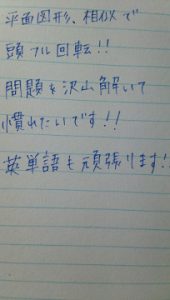 平面図形、相似で
頭フル回転!!
問題を沢山解いて
慣れたいです!!
英単語も頑張ります!